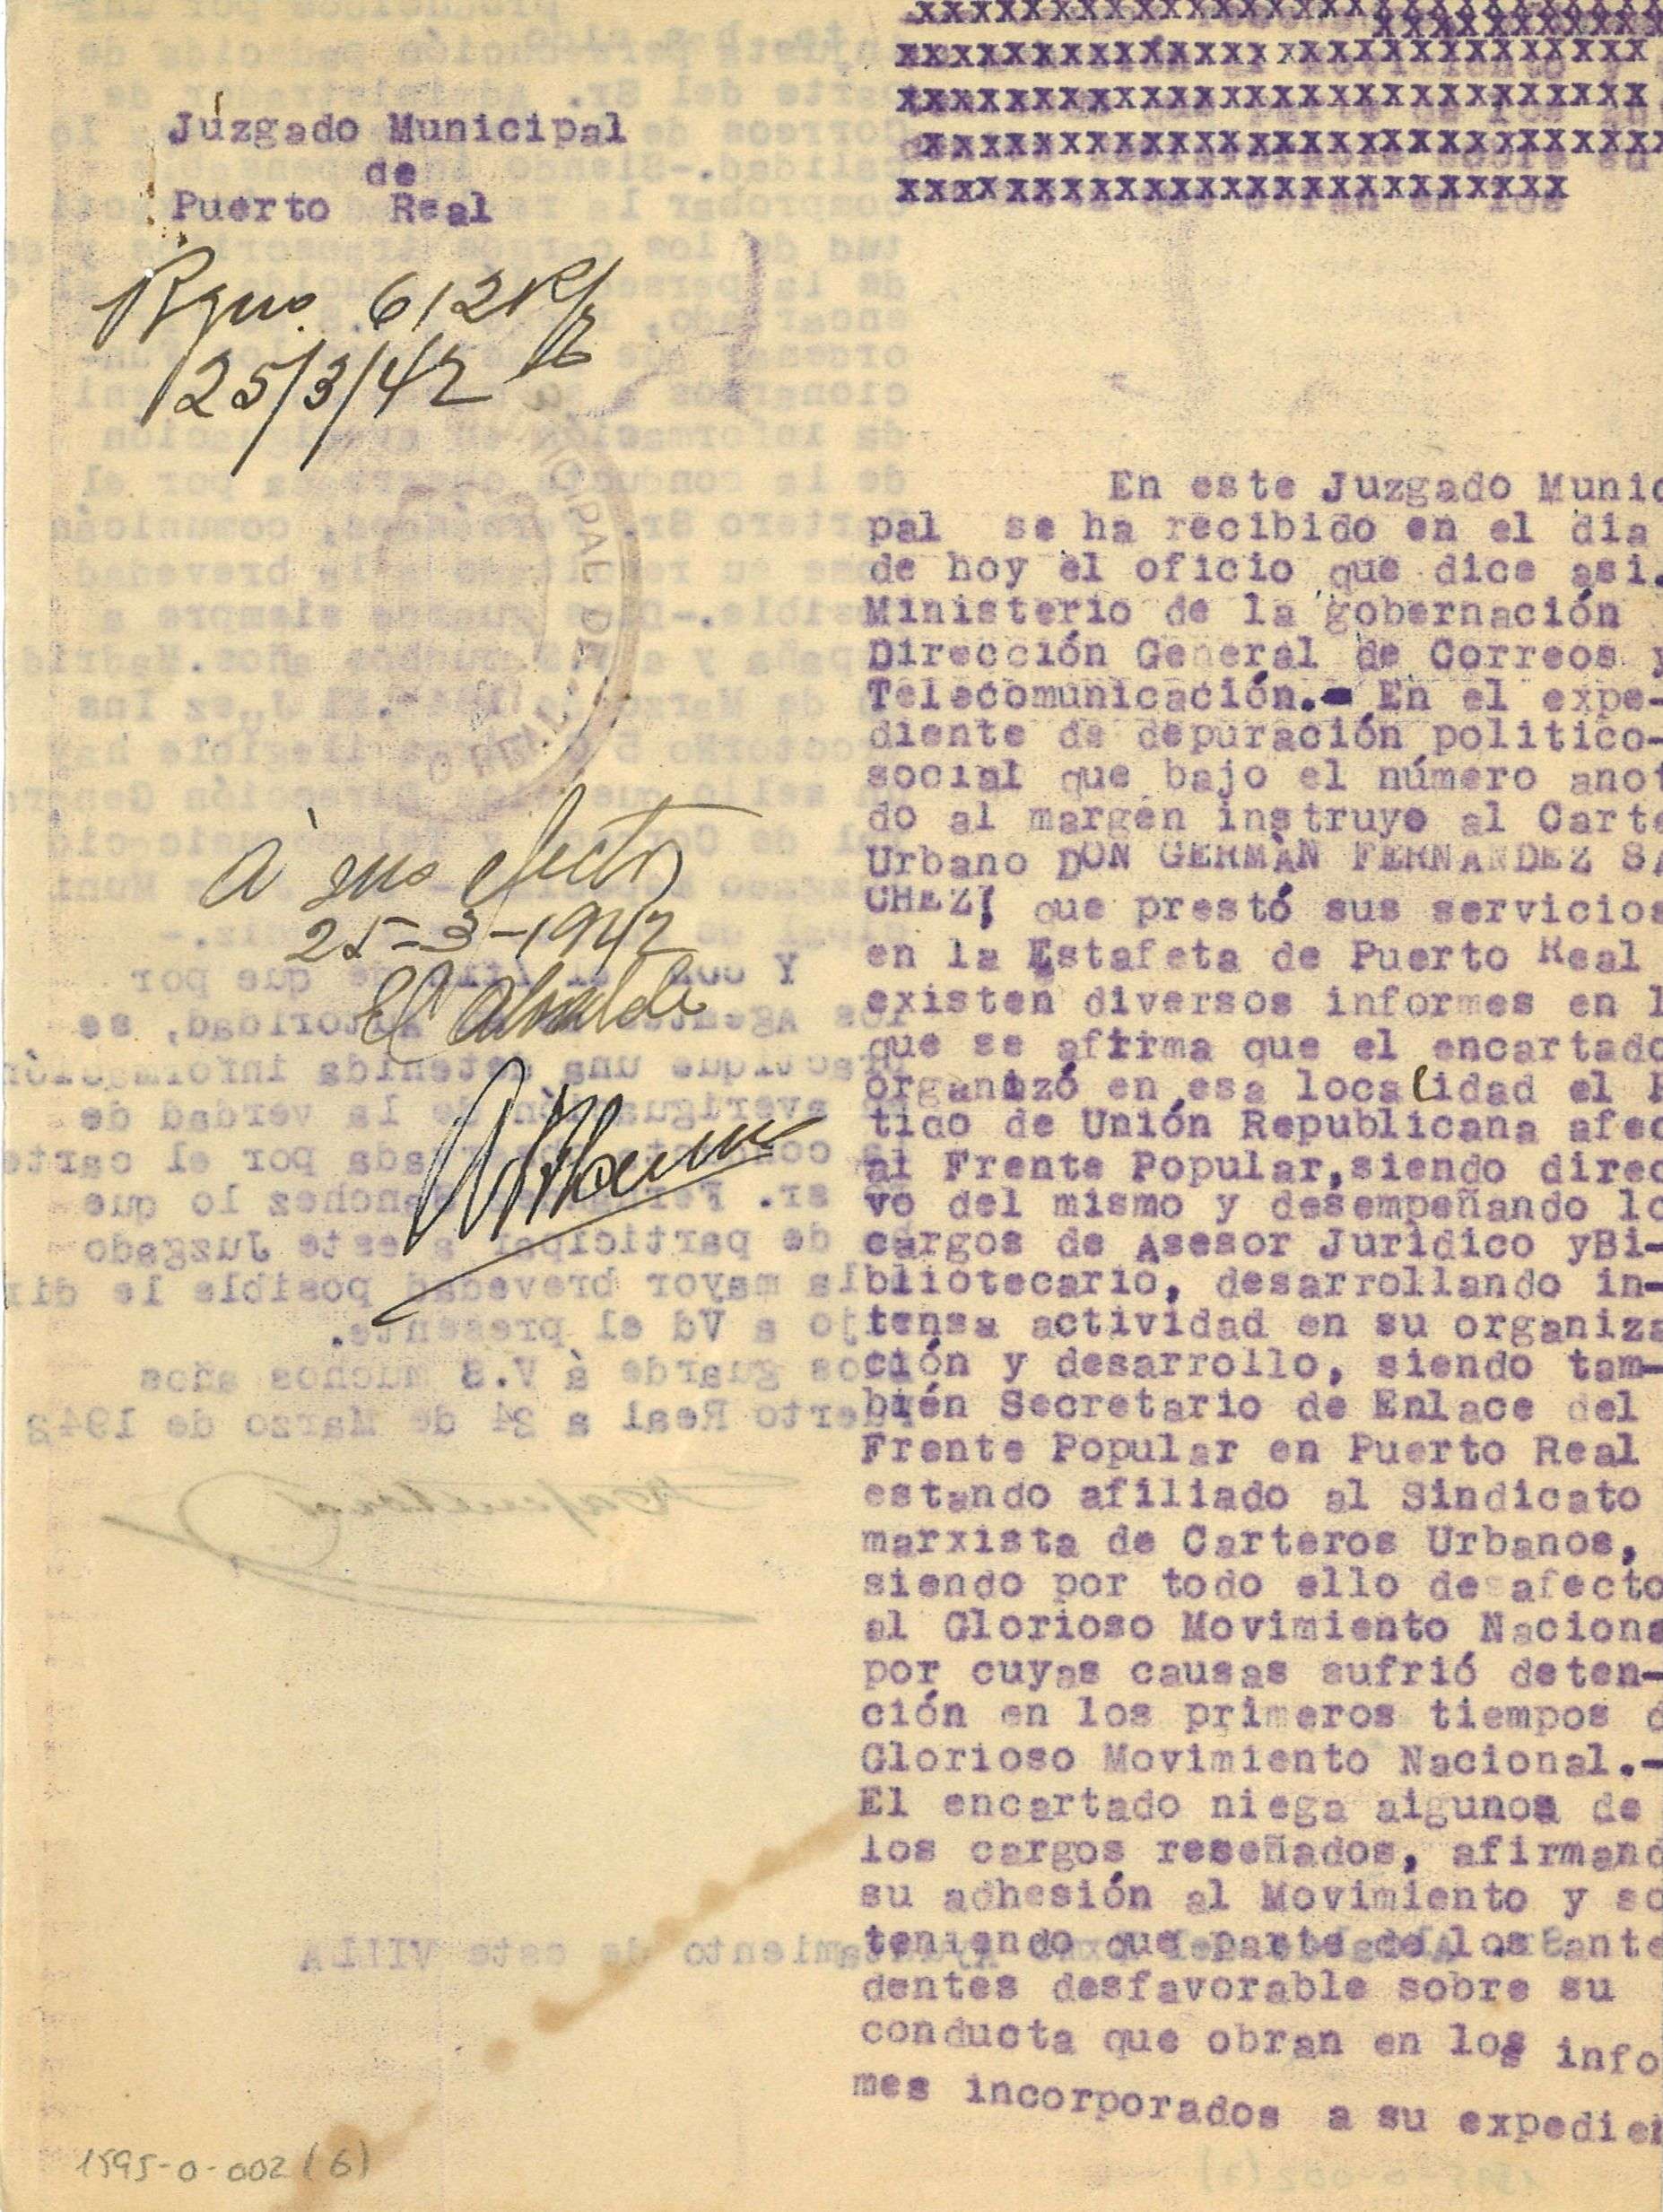 xxxxxxxxxxxxxxxxxxxxxxxxxxxx
xxxxxxxxxxxxxxxxxxxxxxxxxxxx
xxxxxxxxxxxxxxxxxxxxxxxxxxxx
xxxxxxxxxxxxxxxxxxxxxxxxxxxx
xxxxxxxxxxxxxxxxxxxxxxxxx
Juzgado Municipal
de
Puerto Real
612
25/3/42
En este Juzgado Munic
pal se ha recibido en el dia
de hoy èl oficio que dice asi.
Ministerio de la gobernación
Dirección General de Correos y
Telecomunicación.- En el expe-
diente de depuración politico-
social que bajo el número anot
do al margen instruyo al Carte
Urbano DON GERMÀN FERNANDEZ SA
CHEZ, que prestó sus servicios
en la Estafeta de Puerto Real
existen diversos informes en l
que se afirma que el encartado
organizó en esa localidad el P
tido de Unión Republicana afec
al Frente Popular,siendo direc
vo del mismo y desempeñando lo
cargos de Asesor Jurìdico yBi-
bliotecario, desarrollando in-
tensa actividad en su organiza
ción y desarrollo, siendo tam-
bién Secretario de Enlace del
Frente Popular en Puerto Real
estando afiliado al Sindicato
marxista de Carteros Urbanos,
siendo por todo ello desafecto
al Glorioso Movimiento Naciona
por cuyas causas sufrió deten-
ción en los primeros tiempos d
Glorioso Movimiento Nacional.-
El encartado niega algunos de
los cargos reseñados, afirmand
su adhesión al Movimiento y so
teniendo que parte de los ante
dentes desfavorable sobre su
conducta que obran en los info
mes incorporados a su expedien
à sus efectos
25-3-1942
El Alcalde
1595-0-002(6)